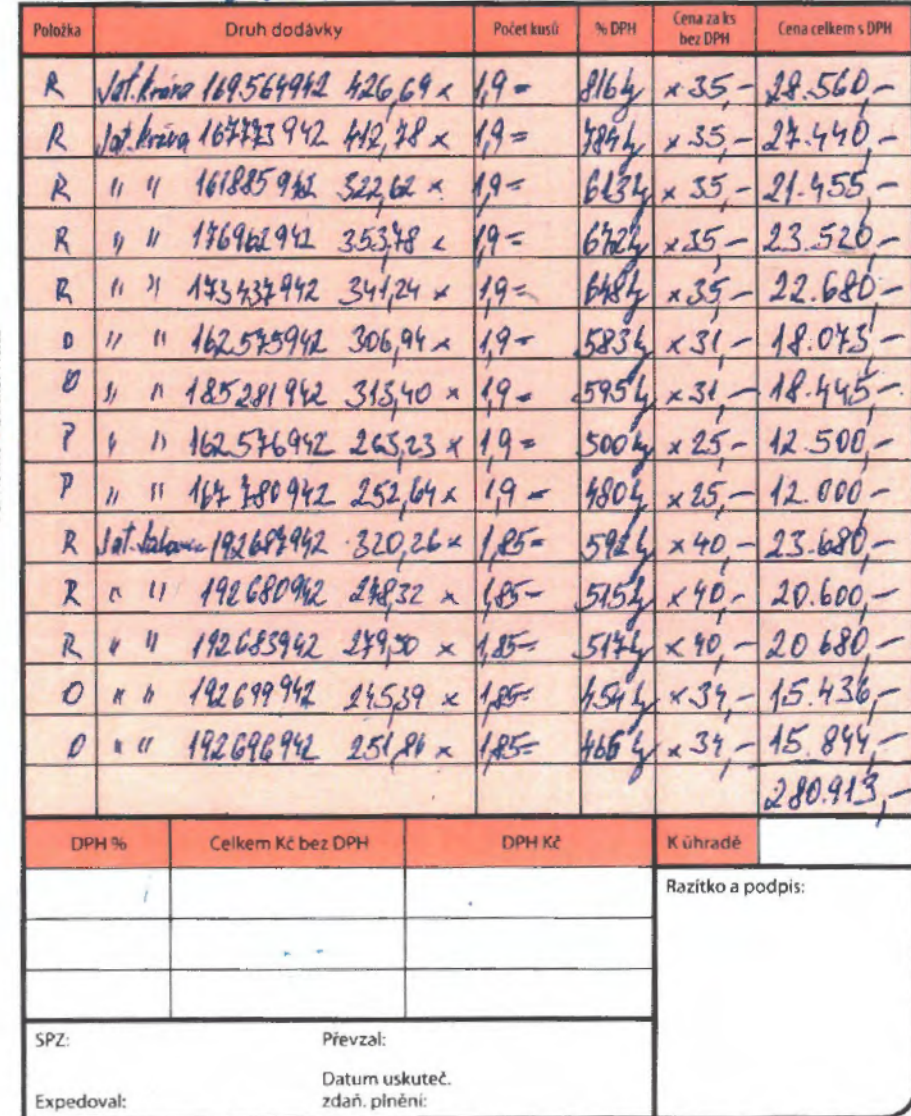 Položka Druh dodávky Počet kusů % DPH Cena za ks bez DPH Cena celkem s DPH
R Jat. kráva 169564942 426,69 x 1,9 = 816 kg x 35,- 28.560,-
R Jat. kráva 167773942 412,78 x 1,9 = 784 kg x 35,- 27.440,-
R " " 161885942 322,62 x 1,9 = 613 kg x 35,- 21.455,-
R " " 176962942 353,78 x 1,9 = 672 kg x 35,- 23.520,-
R " " 173437942 341,24 x 1,9 = 648 kg x 35,- 22.680,-
O " " 162575942 306,94 x 1,9 = 583 kg x 31,- 18.073,-
O " " 185281942 313,40 x 1,9 = 595 kg x 31,- 18.445,-
P " " 162576942 263,23 x 1,9 = 500 kg x 25,- 12.500,-
P " " 167780942 252,64 x 1,9 = 480 kg x 25,- 12.000,-
R Jat. 192687942 320,26 x 1,85 = 592 kg x 40,- 23.680,-
R " " 192680942 278,32 x 1,85 = 515 kg x 40,- 20.600,-
R " " 192683942 279,50 x 1,85 = 517 kg x 40,- 20.680,-
O " " 192699942 245,39 x 1,85 = 454 kg x 34,- 15.436,-
O " " 192696942 251,86 x 1,85 = 466 kg x 34,- 15.844,-
280.913,-
DPH % Celkem Kč bez DPH DPH Kč K úhradě
Razítko a podpis:
SPZ: Převzal:
Datum uskuteč.
Expedoval: zdaň. plnění: